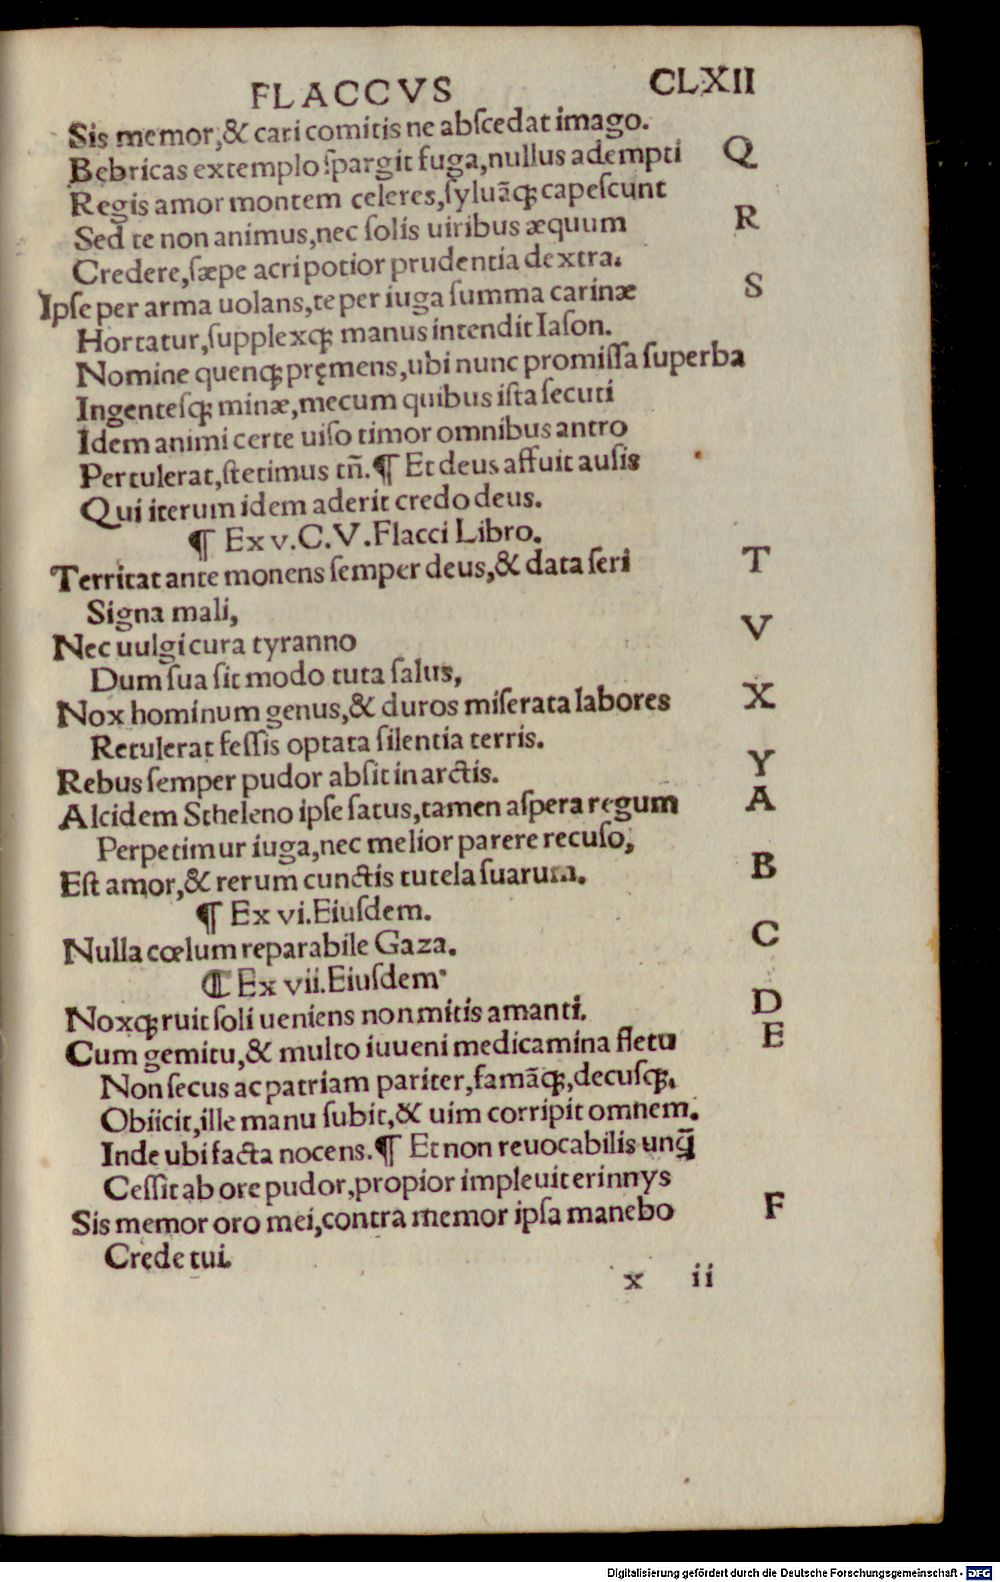 FLACCVS CLXII
Sis memor,& cari comitis ne abſcedat imago.
Bebricas extemplo ſpargit fuga,nullus adempti Q
Regis amor montem celeres,ſyluãq; capeſcunt
Sed te non animus,nec ſolis uiribus æquum R
Credere,ſæpe acri potior prudentia dextra.
Ipſe per arma uolans,te per iuga ſumma carinæ S
Hortatur,ſupplexq; manus intendit Iaſon.
Nomine quenq; pręmens,ubi nunc promiſſa ſuperba
Ingenteſq; minæ,mecum quibus iſta ſecuti
Idem animi certe uiſo timor omnibus antro
Pertulerat,ſtetimus tñ.¶ Et deus affuit auſis
Qui iterum idem aderit credo deus.
¶ Ex v.C.V.Flacci Libro.
Territat ante monens ſemper deus,& data ſeri T
Signa mali,
Nec uulgi cura tyranno V
Dum ſua ſit modo tuta ſalus,
Nox hominum genus,& duros miſerata labores X
Retulerat feſſis optata ſilentia terris.
Rebus ſemper pudor abſit in arctis. Y
Alcidem Stheleno ipſe ſatus,tamen aſpera regum A
Perpetimur iuga,nec melior parere recuſo,
Eſt amor,& rerum cunctis tutela ſuarum. B
¶ Ex vi.Eiuſdem.
Nulla cœlum reparabile Gaza. C
¶ Ex vii.Eiuſdem.
Noxq; ruit ſoli ueniens non mitis amanti. D
Cum gemitu,& multo iuueni medicamina fletu E
Non ſecus ac patriam pariter,famãq;,decuſq;.
Obiicit,ille manu ſubit,& uim corripit omnem.
Inde ubi facta nocens.¶ Et non reuocabilis unq̃
Ceſſit ab ore pudor,propior impleuit erinnys
Sis memor oro mei,contra memor ipſa manebo F
Crede tui.
x ii
Digitalisierung gefördert durch die Deutsche Forschungsgemeinschaft - DFG